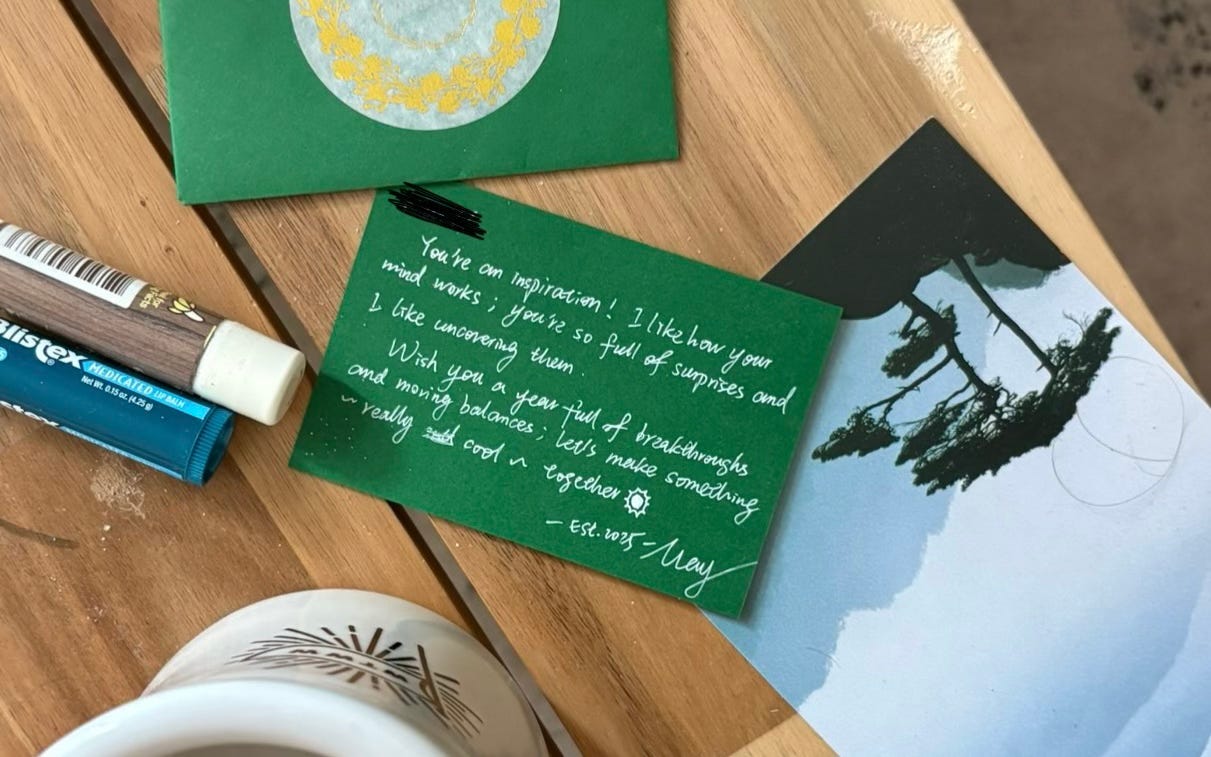 You're an inspiration! I like how your
mind works; you're so full of surprises and
I like uncovering them.
Wish you a year full of breakthroughs
and moving balances; let's make something
~ really cool ~ together
- Est. 2025 - May
Blistex
MEDICATED LIP BALM
Net Wt. 0.15 oz (4.25 g)